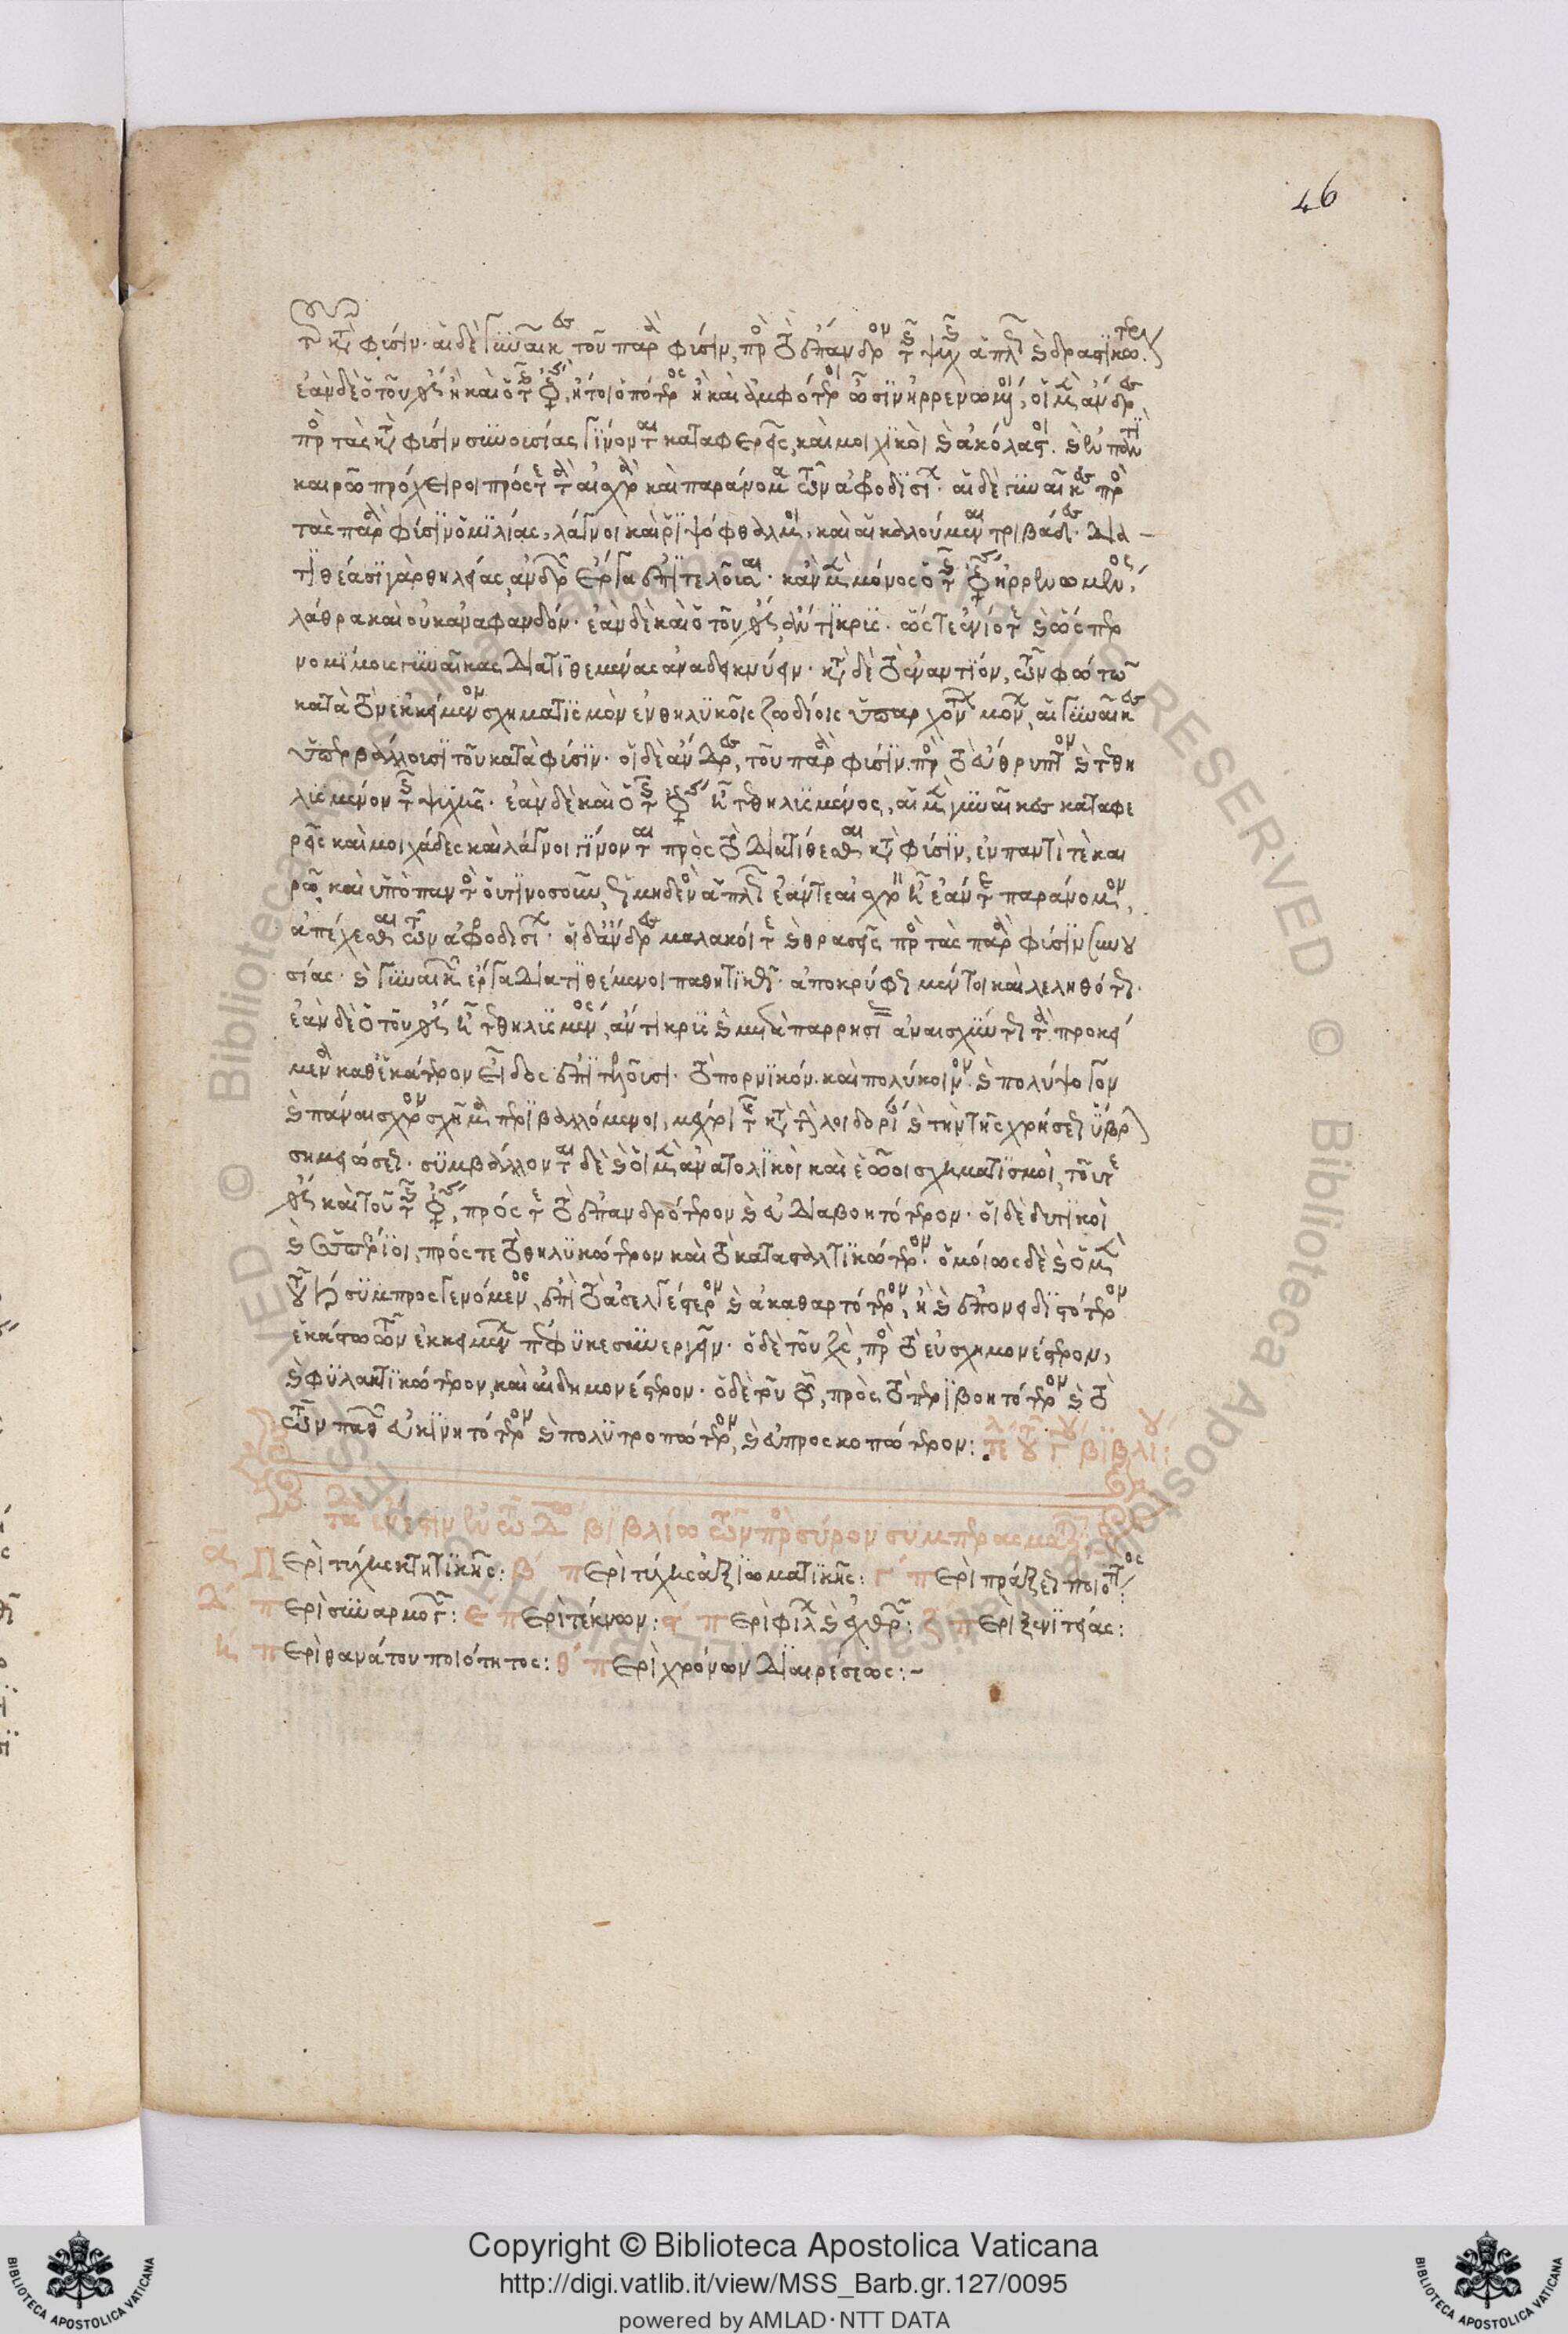 46
τοῦ κατὰ φύσιν· αἱ δὲ γυναῖκες τοῦ παρὰ φύσιν, πρὸς τὸ ἔπανδρον τῆς ψυχῆς ἁπλῶς καὶ δραστικώτερον.
ἐὰν δὲ ὁ τοῦ ♂ ἢ καὶ ὁ τῆς ♀, ἤτοι ὁπότερος ἢ καὶ ἀμφότεροι ὦσιν ἠρρενωμένοι, οἱ μὲν ἄνδρες
πρὸς τὰς κατὰ φύσιν συνουσίας γίνονται καταφερεῖς, καὶ μοιχικοὶ καὶ ἀκόλαστοι. καὶ ἐν παντὶ
καιρῷ πρόχειροι πρός τε τὰ αἰσχρὰ καὶ παράνομα τῶν ἀφροδισίων· αἱ δὲ γυναῖκες πρὸς
τὰς παρὰ φύσιν ὁμιλίας, λάγνοι καὶ ῥιψόφθαλμοι, καὶ αἱ καλούμεναι τριβάδες· δια-
τιθέασι γὰρ θηλείας, ἀνδρῶν ἔργα ἐπιτελοῦσαι· κἂν μὲν μόνος ὁ τῆς ♀ ἠρρενωμένος,
λάθρα καὶ οὐκ ἀναφανδόν· ἐὰν δὲ καὶ ὁ τοῦ ♂, ἄντικρυς· ὥστε ἐνίοτε καὶ ὥσπερ
νομίμους γυναῖκας διατιθεμένας ἀναδεικνύειν· κατὰ δὲ τὸ ἐναντίον, τῶν φώτων
κατὰ τὸν ἐκκείμενον σχηματισμὸν ἐν θηλυκοῖς ζωδίοις ὑπαρχόντων μόνων, αἱ γυναῖκες
ὑπερβάλλουσι τοῦ κατὰ φύσιν· οἱ δὲ ἄνδρες, τοῦ παρὰ φύσιν. πρὸς τὸ εὔθρυπτον καὶ τεθη
λυσμένον τῆς ψυχῆς· ἐὰν δὲ καὶ ὁ τῆς ♀ ᾖ τεθηλυσμένος, αἱ μὲν γυναῖκες καταφε
ρεῖς καὶ μοιχάδες καὶ λάγνοι γίνονται πρὸς τὸ διατίθεσθαι κατὰ φύσιν, ἐν παντί τε και
ρῷ καὶ ὑπὸ παντὸς οὑτινοσοῦν, ὡς μηδενὸς ἁπλῶς ἐάν τε αἰσχρὸν ᾖ ἐάν τε παράνομον,
ἀπέχεσθαι τῶν ἀφροδισίων· οἱ δ' ἄνδρες μαλακοί τε καὶ θρασεῖς πρὸς τὰς παρὰ φύσιν συνου
σίας· καὶ γυναικῶν ἔργα διατιθέμενοι παθητικῶς· ἀποκρύφως μέντοι καὶ λεληθότως.
ἐὰν δὲ ὁ τοῦ ♂ ᾖ τεθηλυσμένος, ἄντικρυς καὶ μετὰ παρρησίας ἀναισχυντῶς τὰ προκεί
μενα καθ' ἑκάτερον εἶδος ἐπιτελοῦσι· τὸ πορνικόν. καὶ πολύκοινον. καὶ πολύψογον
καὶ πάναισχρον σχῆμα περιβαλλόμενοι, μέχρι τῆς κατὰ τὴν λοιδορίαν καὶ τὴν τῆς χρήσεως ὕβριν
σημειώσεως. συμβάλλονται δὲ καὶ οἱ μὲν ἀνατολικοὶ καὶ ἑῷοι σχηματισμοί, τοῦ τε
♂ καὶ τοῦ τῆς ♀, πρός τε τὸ ἐπανδρότερον καὶ εὐδιαβοητότερον· οἱ δὲ δυτικοὶ
καὶ ἑσπέριοι, πρός τε τὸ θηλυκώτερον καὶ τὸ κατασταλτικώτερον. ὁμοίως δὲ καὶ ὁ μὲν
τοῦ ♄ συμπροσγενόμενος, ἐπὶ τὸ ἀσελγέστερον καὶ ἀκαθαρτότερον, ἢ καὶ ἐπονειδιστότερον
ἑκάστῳ τῶν ἐκκειμένων πέφυκε συνεργεῖν· ὁ δὲ τοῦ Διός, πρὸς τὸ εὐσχημονέστερον,
καὶ φυλακτικώτερον, καὶ αἰδημονέστερον· ὁ δὲ τοῦ ☿, πρὸς τὸ περιβοητότερον καὶ τὸ
τῶν παθῶν εὐκινητότερον καὶ πολυτροπώτερον, καὶ εὐπροσκοπώτερον: τέλος τοῦ γ βιβλίου:
τάδε ἔνεστιν ἐν τῷ Δῳ βιβλίῳ τῶν πρὸς Σύρον συμπερασματικῶν:
ᾱ Περὶ τύχης κτητικῆς: β περὶ τύχης ἀξιωματικῆς: γ περὶ πράξεως ποιότητος:
δ περὶ συναρμογῶν: ε περὶ τέκνων: ς περὶ φίλων καὶ ἐχθρῶν: ζ περὶ ξενιτείας:
η περὶ θανάτου ποιότητος: θ περὶ χρόνων διαιρέσεως:-
Copyright © Biblioteca Apostolica Vaticana
http://digi.vatlib.it/view/MSS_Barb.gr.127/0095
powered by AMLAD·NTT DATA